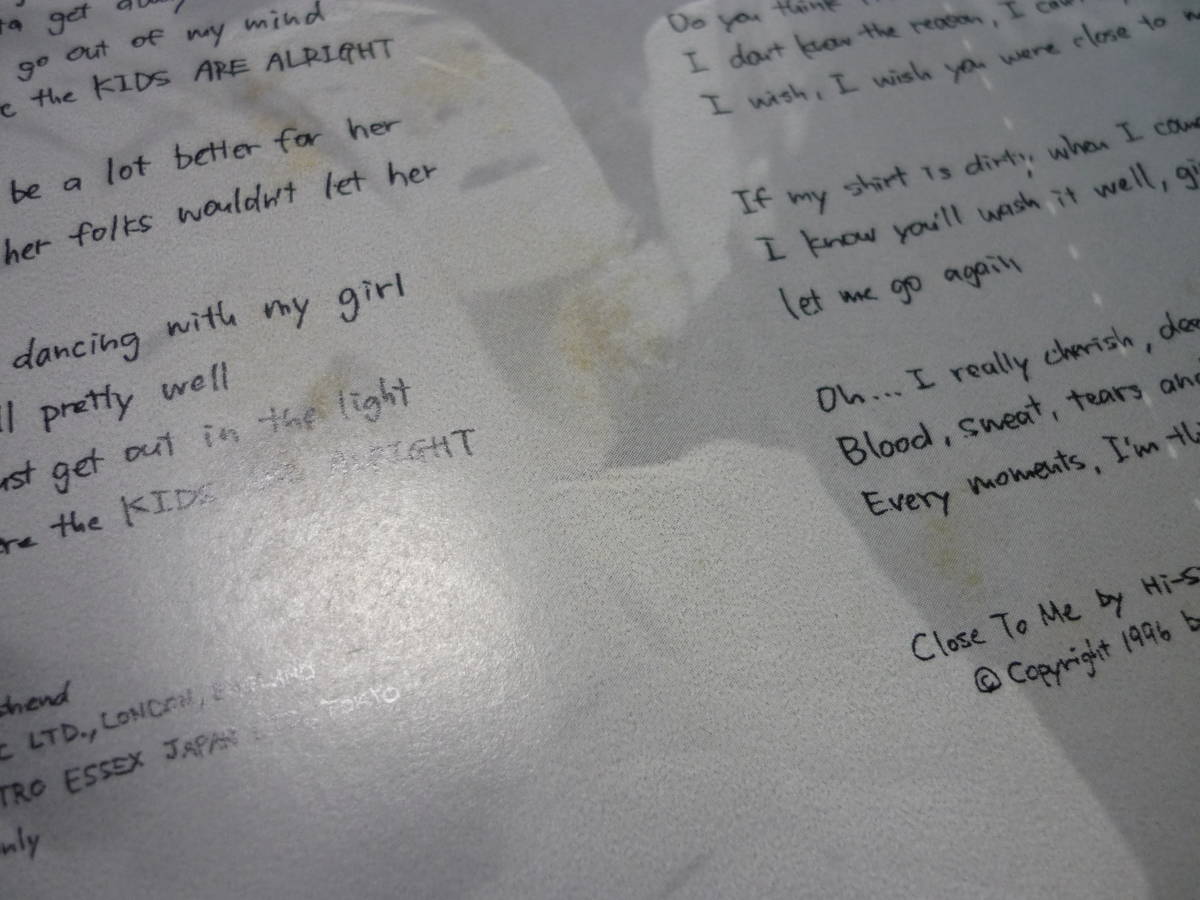 get
go out of my mind
the KIDS ARE ALRIGHT
be a lot better for her
her folks wouldn't let her
dancing with my girl
pretty well
get out in the light
the KIDS ALRIGHT
LTD., LONDON, ENGLAND
ESSEX JAPAN TOKYO
Do you think
I don't know the reason, I
I wish, I wish you were close to
If my shirt is dirty, when I
I know you'll wash it well,
let me go again
Oh... I really cherish,
Blood, sweat, tears and
Every moments, I'm
Close To Me by Hi-S
© Copyright 1996